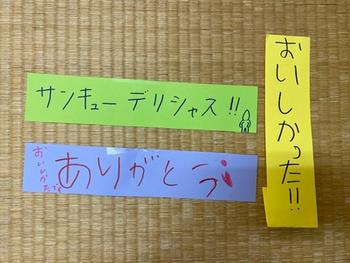 サンキュー デリシャス!!
おいしかったです
ありがとう
おいしかった!!